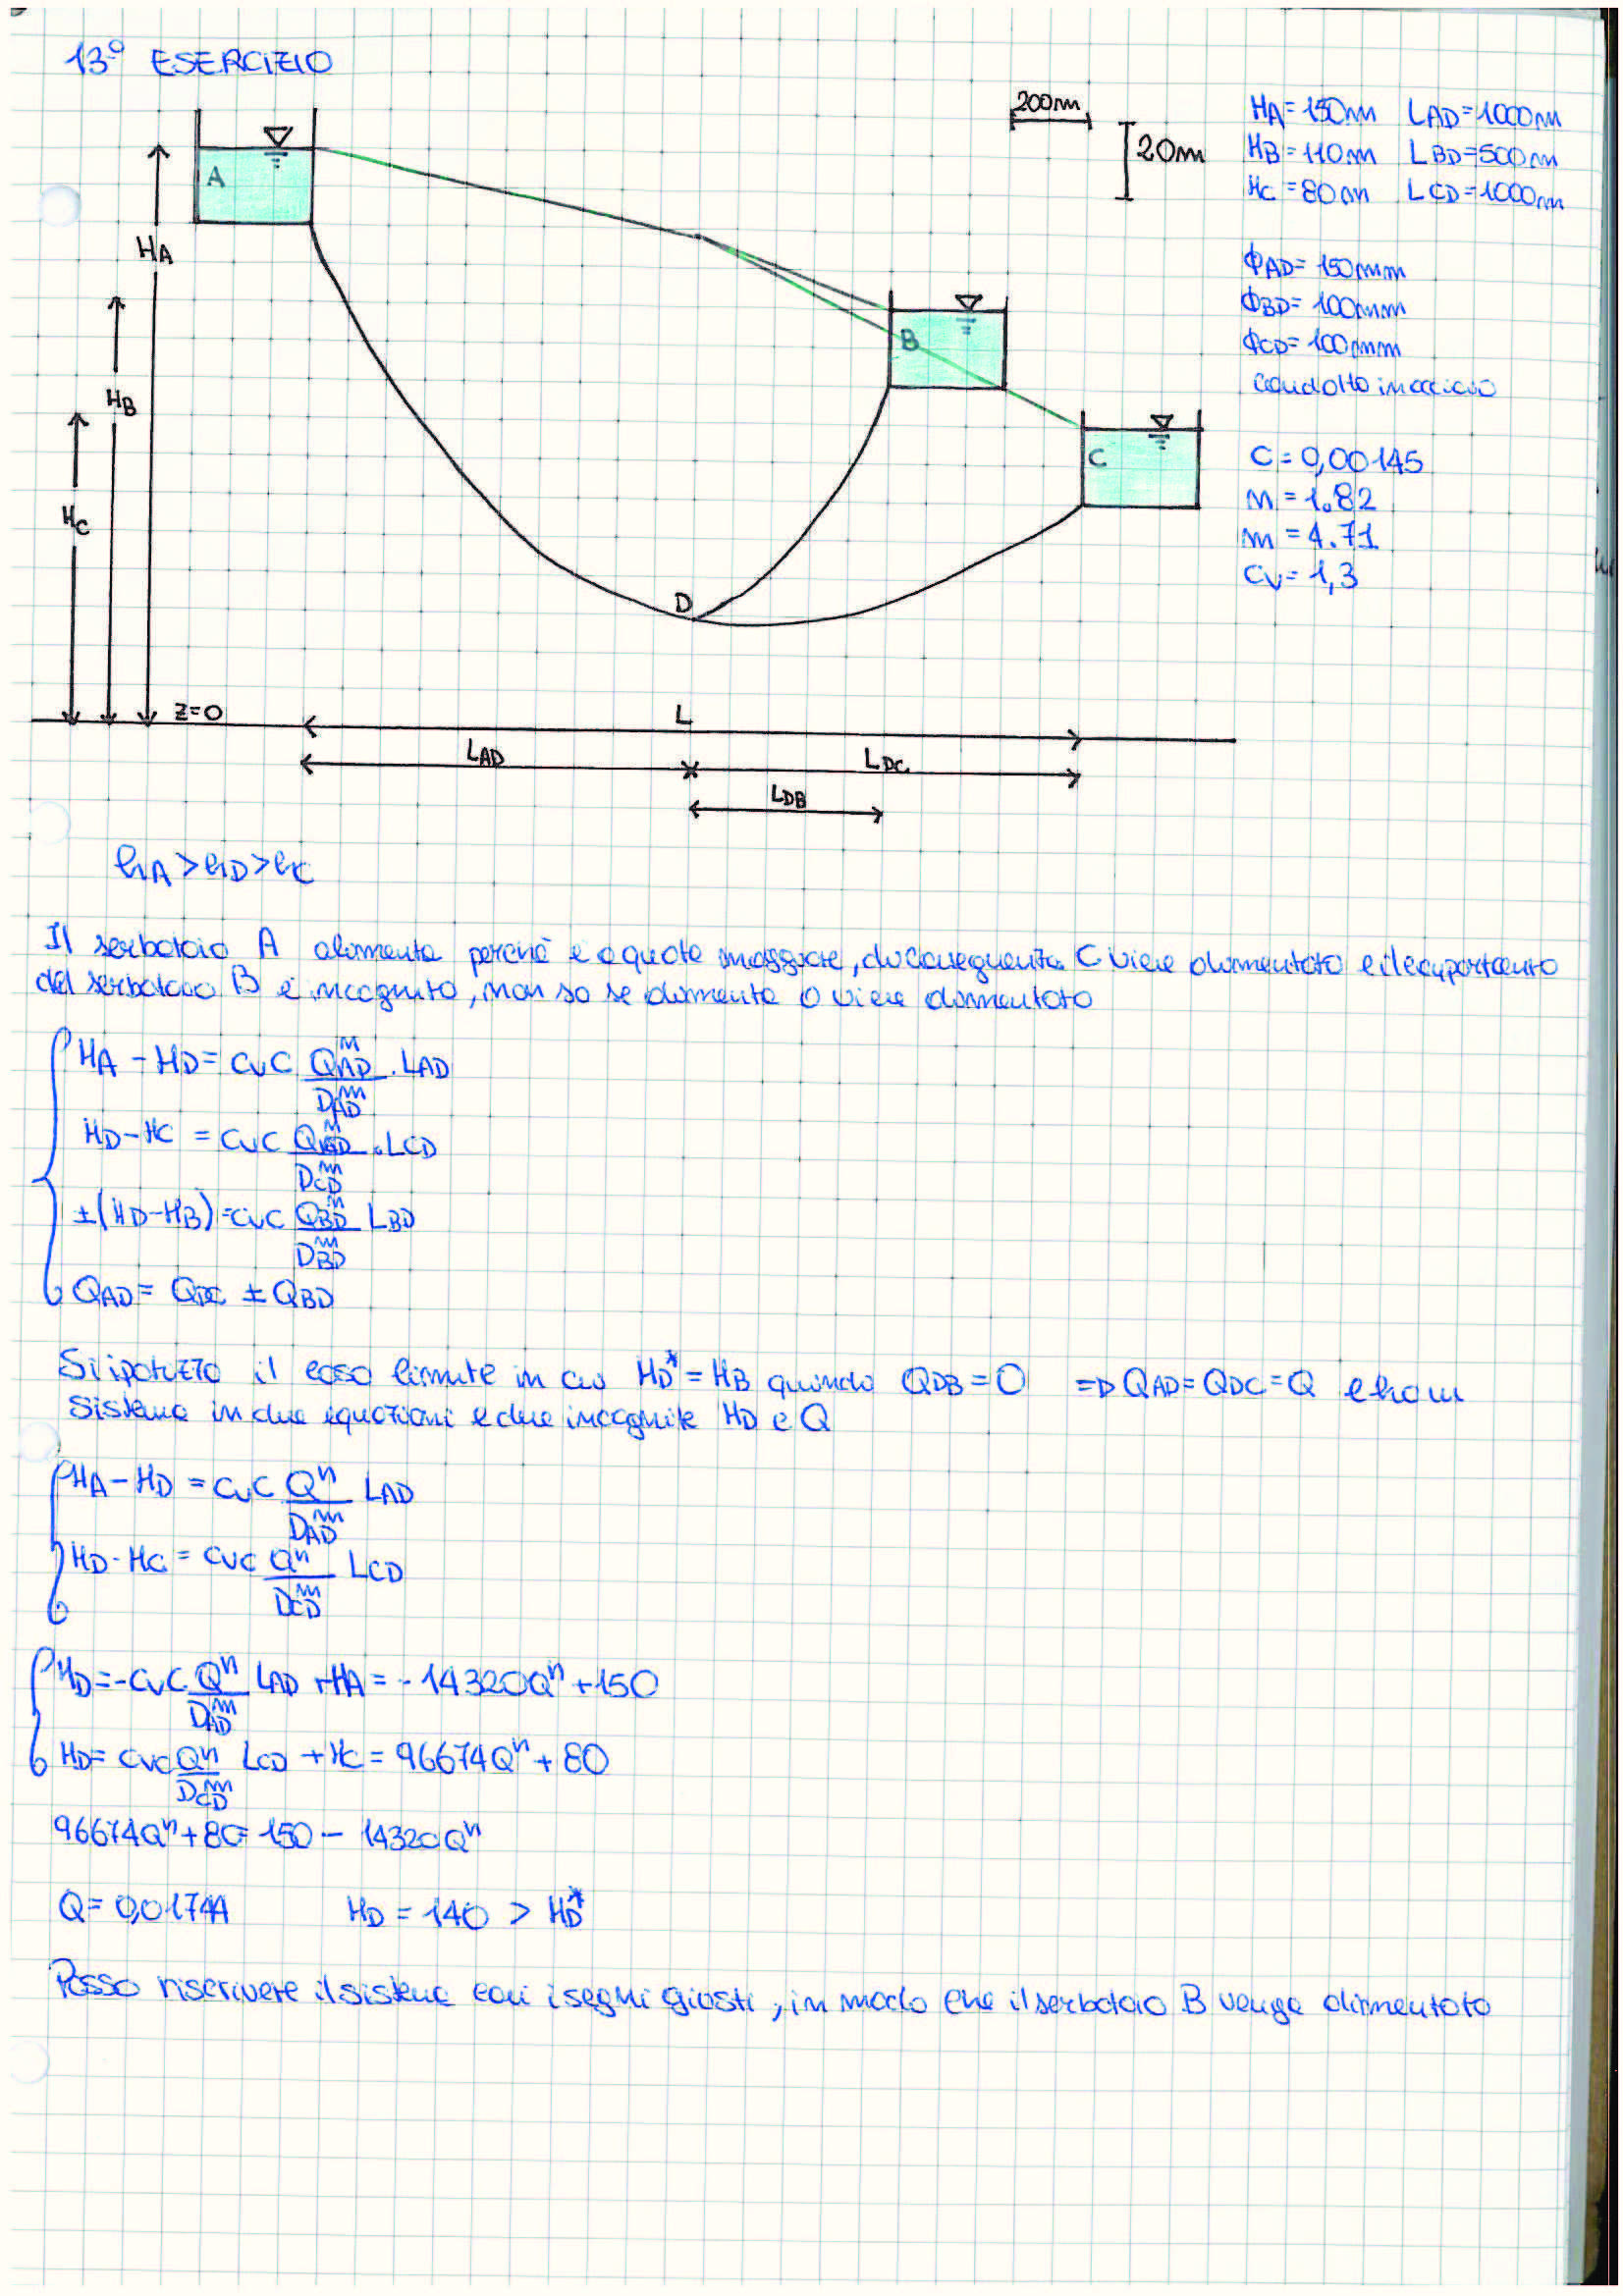 13° ESERCIZIO
200m
20m
HA=150m LAD=1000m
HB=110m LBD=500m
HC=80m LCD=1000m
ΦAD=150mm
ΦBD=100mm
ΦCD=100mm
condotto in acciaio
C=0,00145
n=1.82
m=4.71
Cv=1,3
A
B
C
D
HA
HB
HC
z=0
L
LAD
LDC
LDB
hA>hD>hC
Il serbatoio A alimenta perché è a quota maggiore, di conseguenza C viene alimentato e il comportamento
del serbatoio B è incognito, non so se alimenta o viene alimentato
HA - HD = CvC QAD^n/DAD^m . LAD
HD-HC = CvC QCD^n/DCD^m . LCD
±(HD-HB)=CvC QBD^n/DBD^m LBD
QAD= QDC ± QBD
Si ipotizza il caso limite in cui HD*=HB quindi QDB=0 => QAD=QDC=Q e ho un
sistema in due equazioni e due incognite HD e Q
HA-HD = CvC Q^n/DAD^m LAD
HD-HC = CvC Q^n/DCD^m LCD
HD=-CvC Q^n/DAD^m LAD +HA = -14320Q^n+150
HD= CvC Q^n/DCD^m LCD +HC = 96674Q^n+80
96674Q^n+80=150- 14320Q^n
Q= 0,01744 HD = 140 > HD*
Posso riscrivere il sistema con i segni giusti, in modo che il serbatoio B venga alimentato